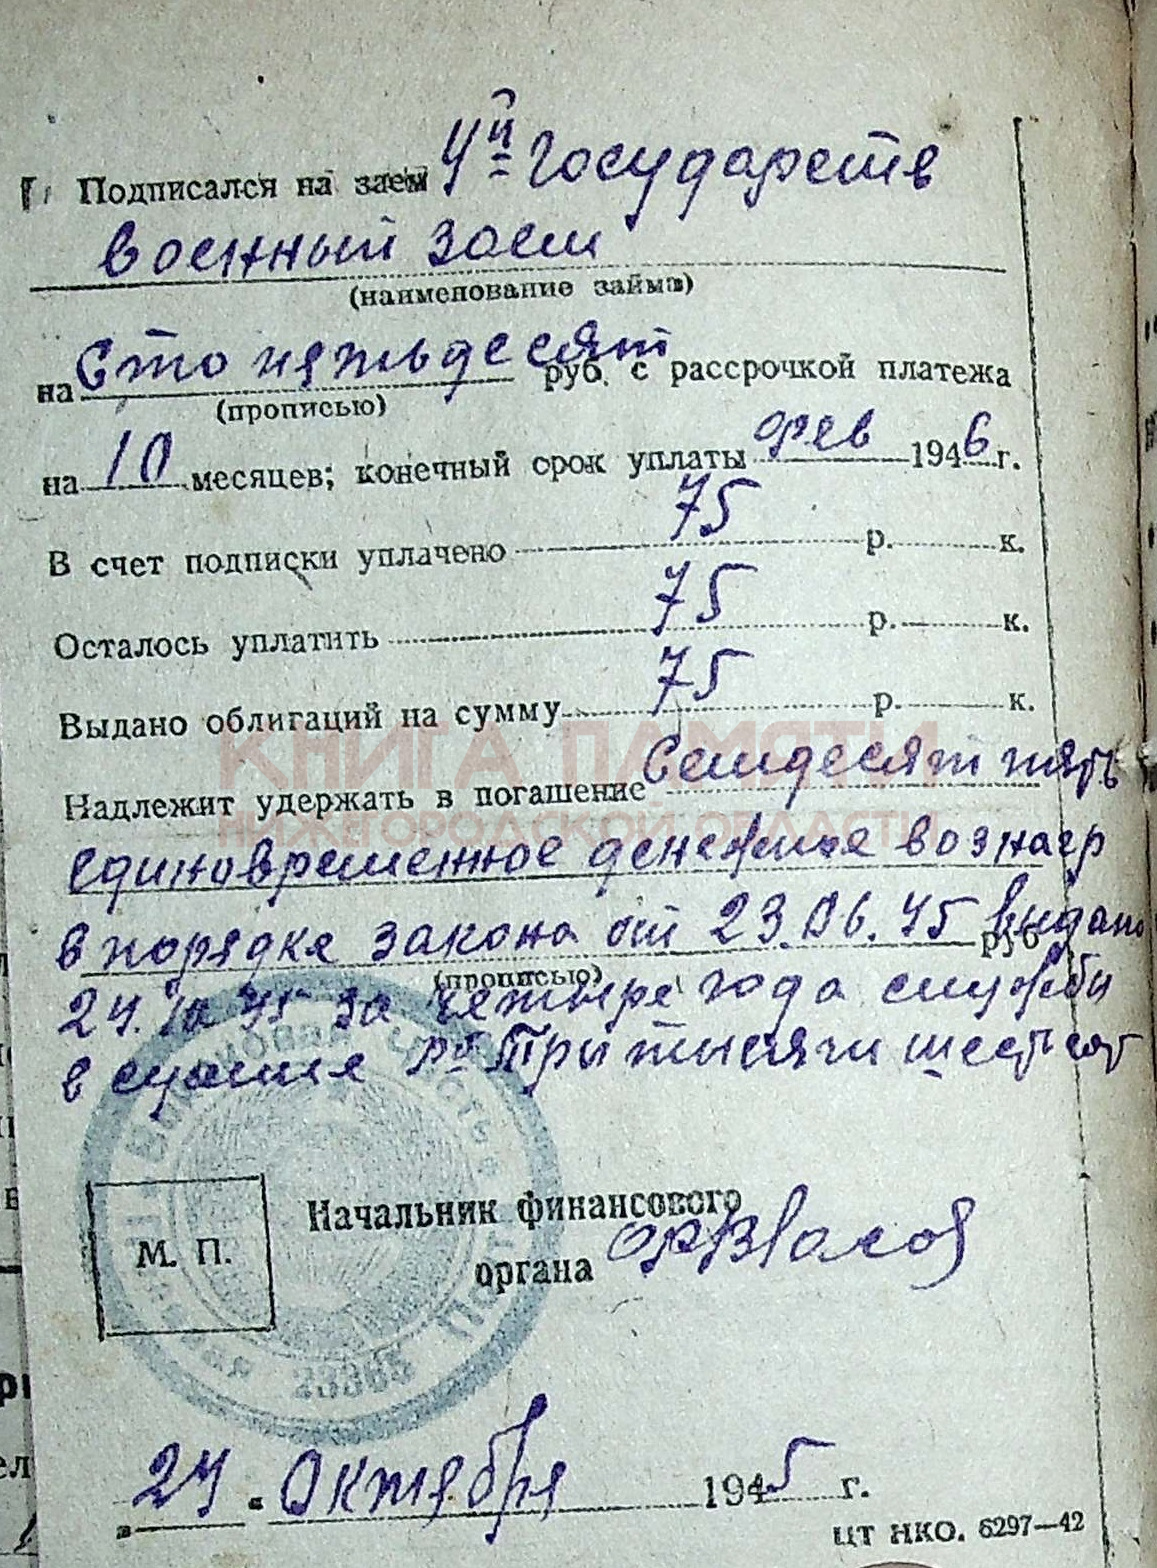 Подписался на заем 4й Государств
военный заем
(наименование займа)
на Сто пятьдесят руб. с рассрочкой платежа
(прописью)
на 10 месяцев; конечный срок уплаты фев 1946 г.
В счет подписки уплачено 75 р. к.
Осталось уплатить 75 р. к.
Выдано облигаций на сумму 75 р. к.
КНИГА ПАМЯТИ
Надлежит удержать в погашение Семдесят пять
НИЖЕГОРОДСКОЙ ОБЛАСТИ
единовременное денежное вознагр
в порядке закона от 23.06.45 выдано
руб
(прописью)
24.10 45 за четыре года службы
в сумме Три тысячи шестьсот
Начальник финансового
органа
М. П.
23865
24. Октября 1945 г.
ЦТ НКО. 6297—42